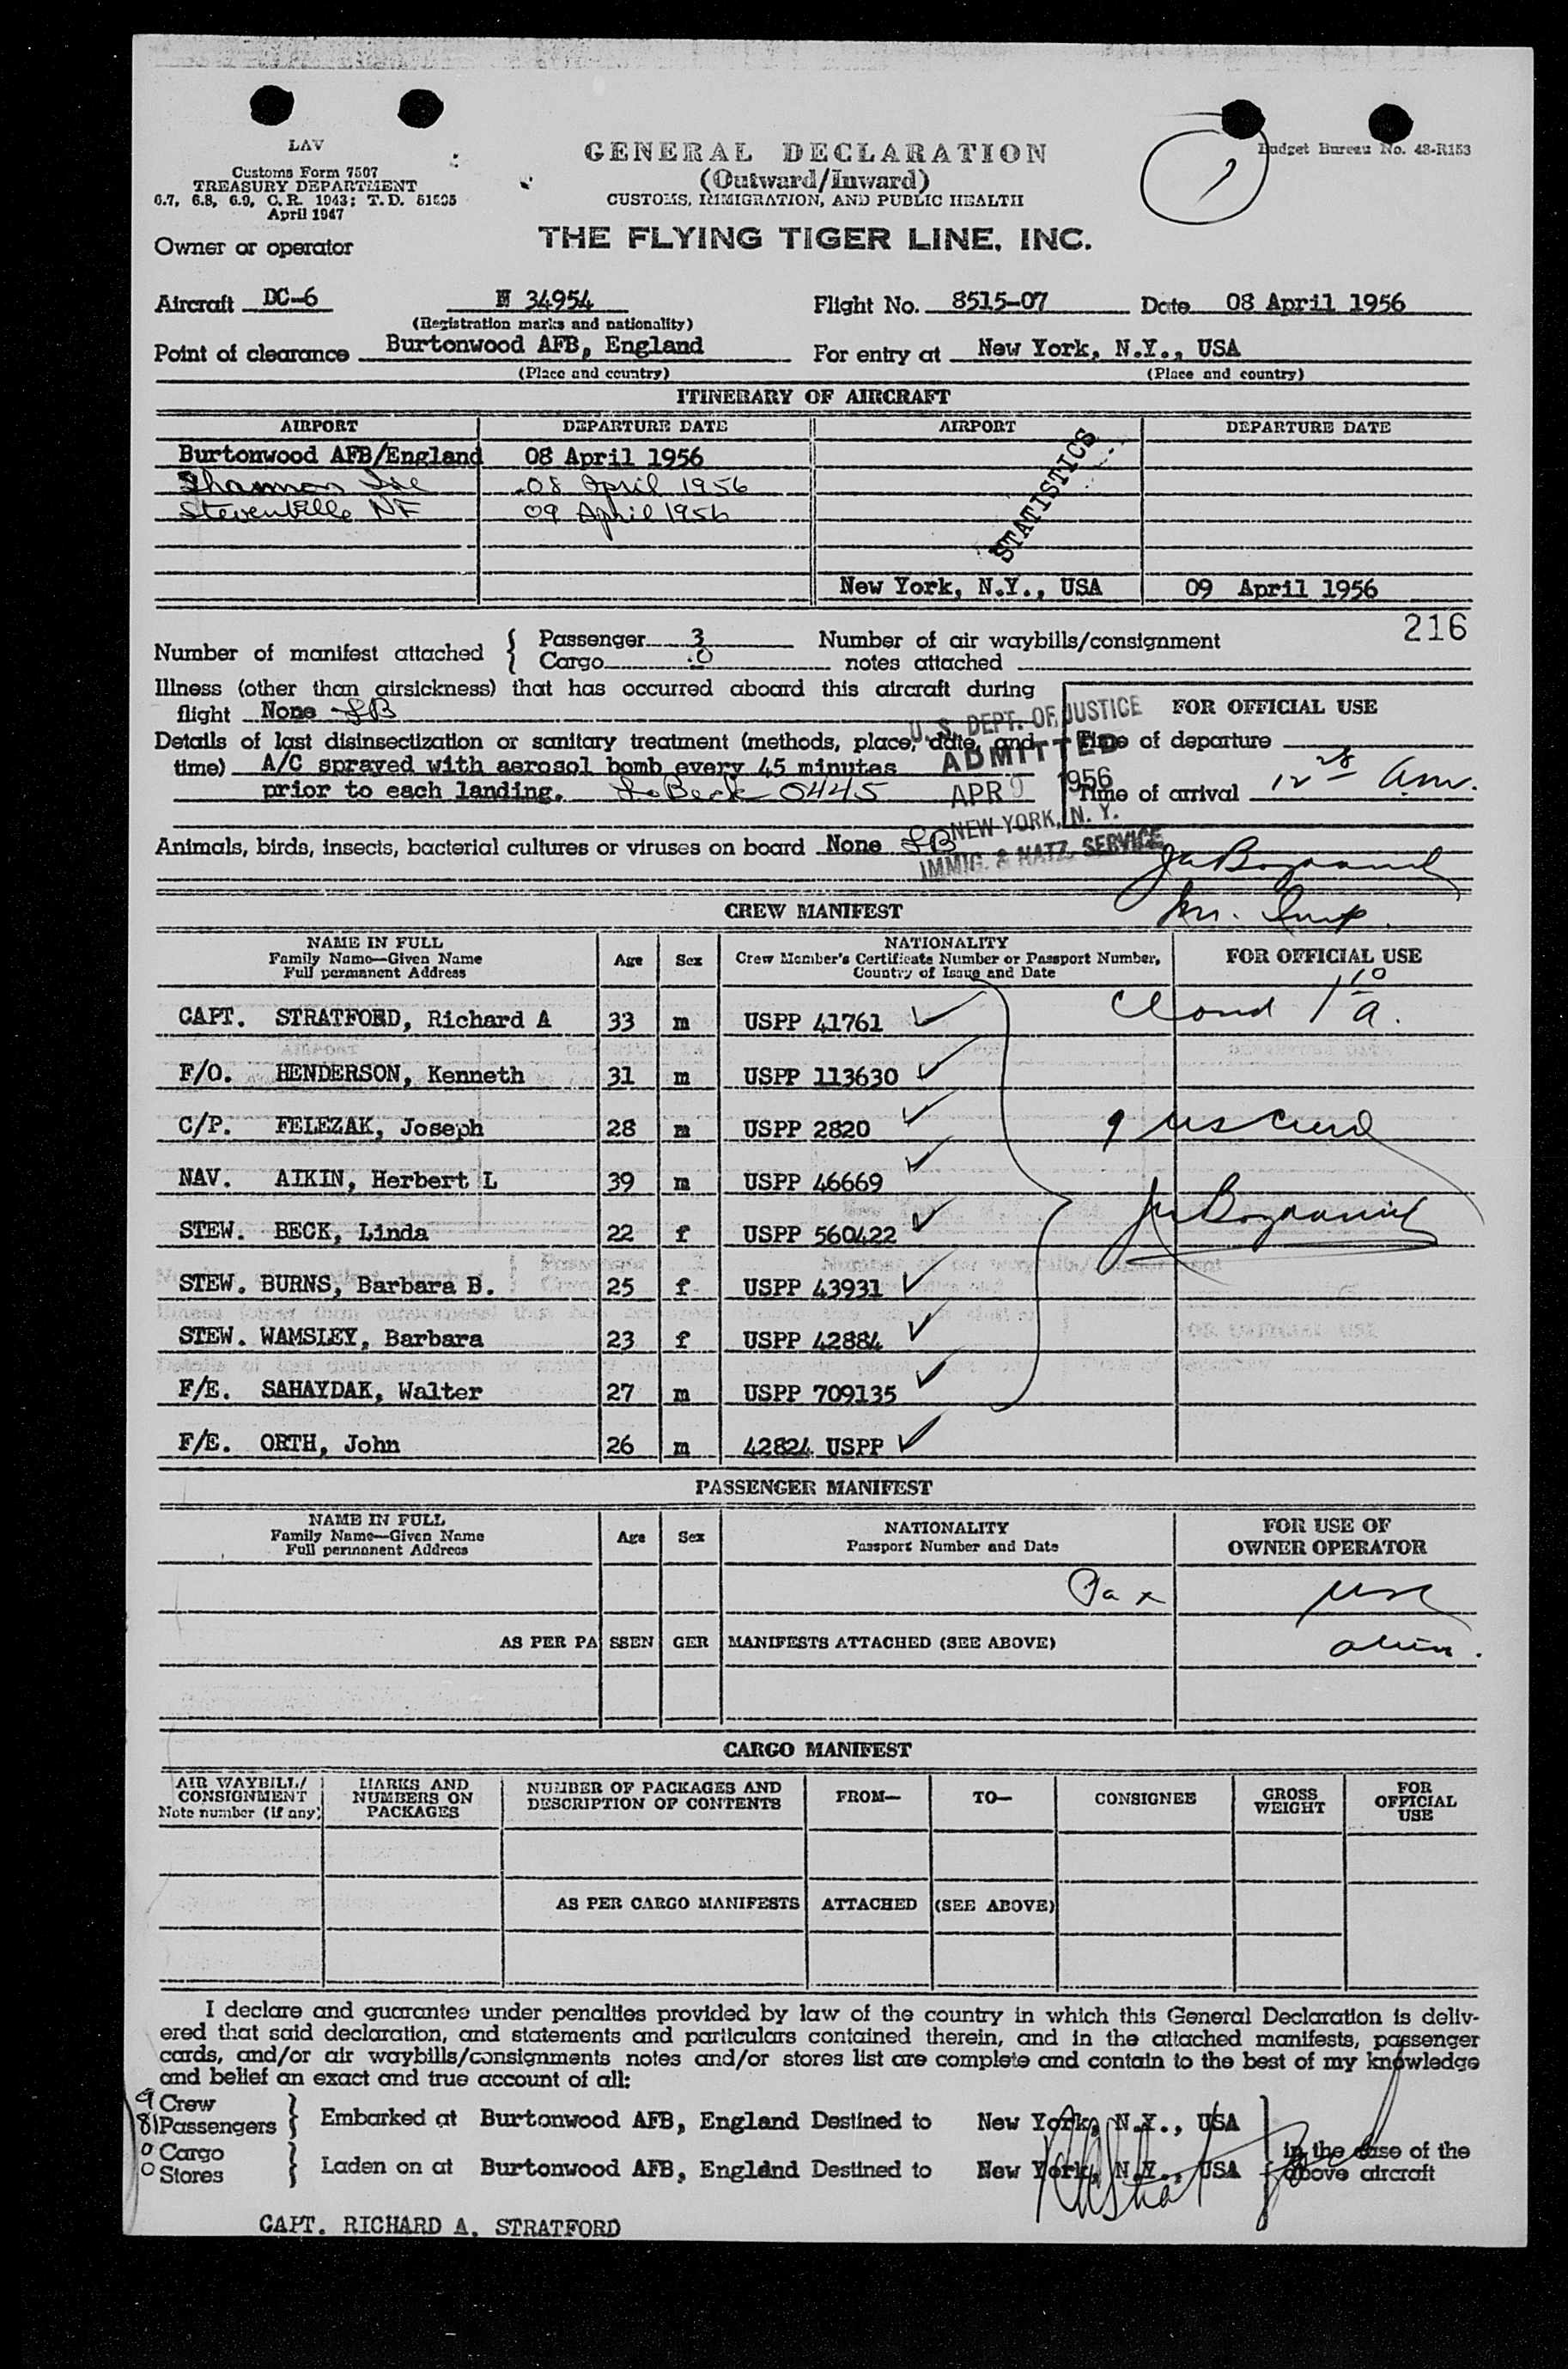 LAV
Customs Form 7507
TREASURY DEPARTMENT
6.7, 6.8, 6.9, C.R. 1943; T.D. 51505
April 1947
GENERAL DECLARATION
(Outward/Inward)
CUSTOMS, IMMIGRATION, AND PUBLIC HEALTH
1
Budget Bureau No. 48-R153
Owner or operator
THE FLYING TIGER LINE, INC.
Aircraft DC-6 N 34954 Flight No. 8515-07 Date 08 April 1956
(Registration marks and nationality)
Point of clearance Burtonwood AFB, England For entry at New York, N.Y., USA
(Place and country) (Place and country)
ITINERARY OF AIRCRAFT
AIRPORT DEPARTURE DATE AIRPORT DEPARTURE DATE
Burtonwood AFB/England 08 April 1956
Shannon Ire 08 April 1956
Stevenville NF 09 April 1956
STATISTICS
New York, N.Y., USA 09 April 1956
216
Number of manifest attached { Passenger 3 Number of air waybills/consignment
Cargo 0 notes attached
Illness (other than airsickness) that has occurred aboard this aircraft during
flight None LB
FOR OFFICIAL USE
U. S. DEPT. OF JUSTICE
ADMITTED
APR 9 1956
NEW YORK, N. Y.
IMMIG. & NATZ. SERVICE
Details of last disinsectization or sanitary treatment (methods, place, date, and
time) A/C sprayed with aerosol bomb every 45 minutes
prior to each landing. L. Beck 0445
Time of departure
Time of arrival 12 28 am.
Animals, birds, insects, bacterial cultures or viruses on board None LB
CREW MANIFEST
NAME IN FULL
Family Name—Given Name
Full permanent Address
Age
Sex
NATIONALITY
Crew Member's Certificate Number or Passport Number,
Country of Issue and Date
FOR OFFICIAL USE
CAPT. STRATFORD, Richard A 33 m USPP 41761
1 10 a.
F/O. HENDERSON, Kenneth 31 m USPP 113630
C/P. FELEZAK, Joseph 28 m USPP 2820
9
NAV. AIKIN, Herbert L 39 m USPP 46669
STEW. BECK, Linda 22 f USPP 560422
STEW. BURNS, Barbara B. 25 f USPP 43931
STEW. WAMSLEY, Barbara 23 f USPP 42884
F/E. SAHAYDAK, Walter 27 m USPP 709135
F/E. ORTH, John 26 m 42824 USPP
PASSENGER MANIFEST
NAME IN FULL
Family Name—Given Name
Full permanent Address
Age
Sex
NATIONALITY
Passport Number and Date
FOR USE OF
OWNER OPERATOR
Pax
AS PER PASSENGER MANIFESTS ATTACHED (SEE ABOVE)
CARGO MANIFEST
AIR WAYBILL/
CONSIGNMENT
Note number (if any)
MARKS AND
NUMBERS ON
PACKAGES
NUMBER OF PACKAGES AND
DESCRIPTION OF CONTENTS
FROM—
TO—
CONSIGNEE
GROSS
WEIGHT
FOR
OFFICIAL
USE
AS PER CARGO MANIFESTS ATTACHED (SEE ABOVE)
I declare and guarantee under penalties provided by law of the country in which this General Declaration is deliv-
ered that said declaration, and statements and particulars contained therein, and in the attached manifests, passenger
cards, and/or air waybills/consignments notes and/or stores list are complete and contain to the best of my knowledge
and belief an exact and true account of all:
9 Crew
81 Passengers } Embarked at Burtonwood AFB, England Destined to New York, N.Y., USA
0 Cargo
0 Stores } Laden on at Burtonwood AFB, England Destined to New York, N.Y., USA
in the case of the
above aircraft
CAPT. RICHARD A. STRATFORD